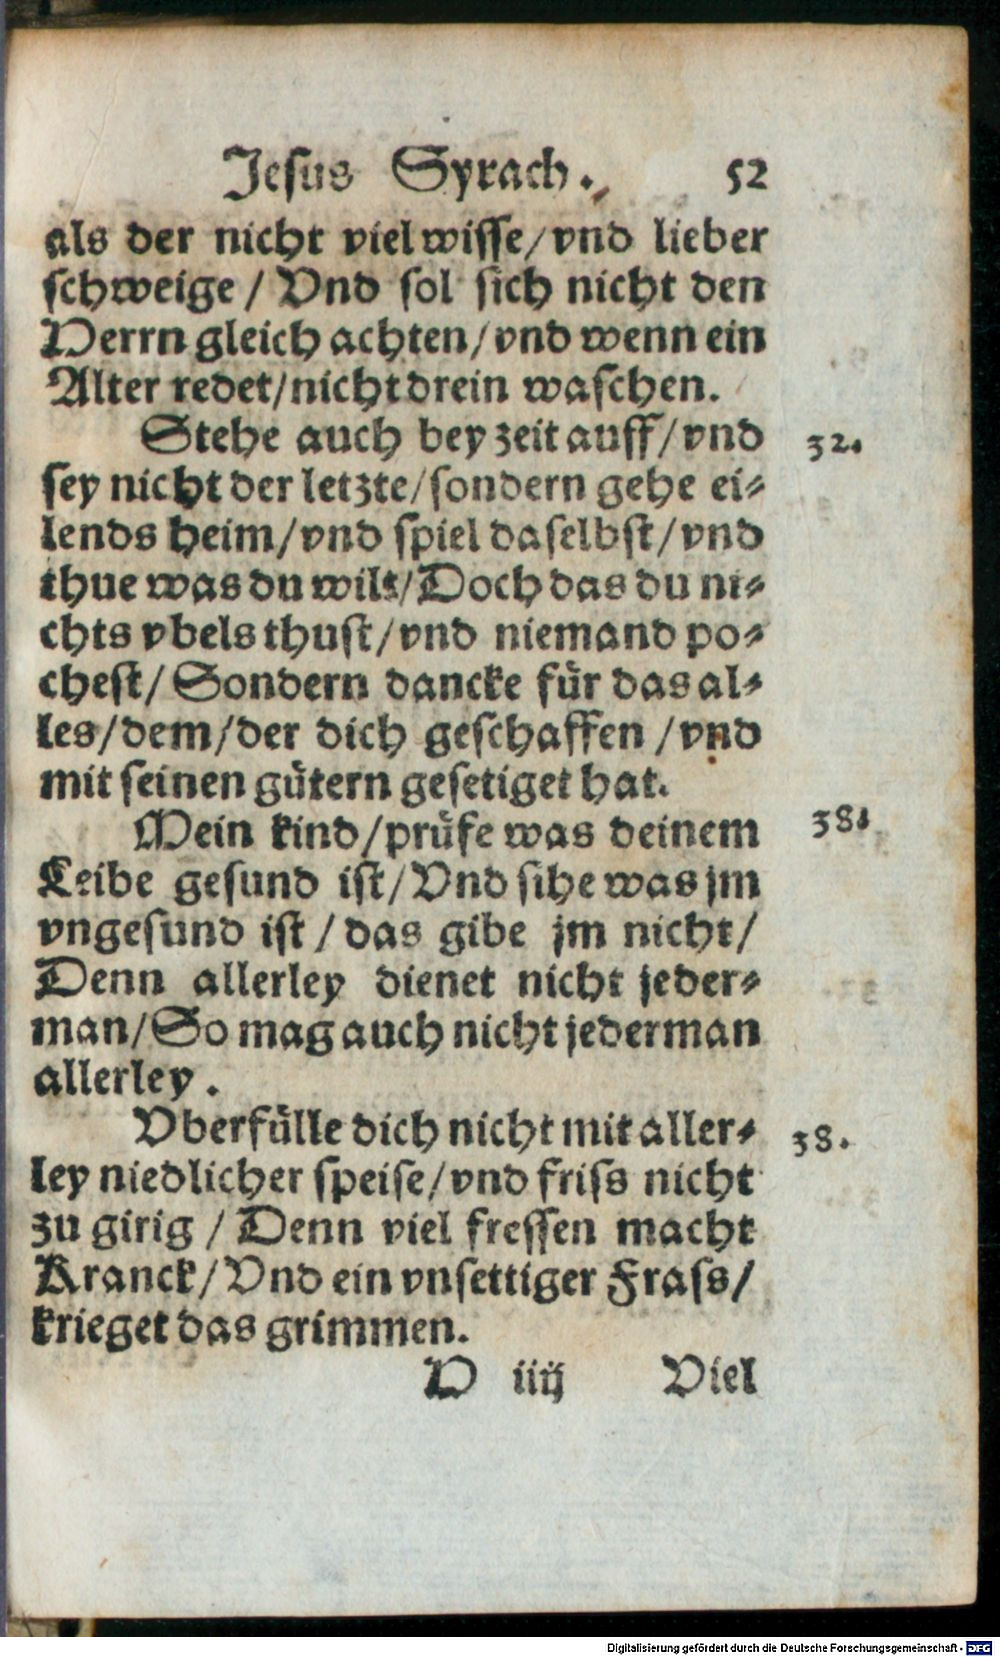 Jesus Syrach. 52
als der nicht viel wisse/vnd lieber
schweige/Vnd sol sich nicht den
Herrn gleich achten/vnd wenn ein
Alter redet/nicht drein waschen.
Stehe auch bey zeit auff/vnd 32.
sey nicht der letzte/sondern gehe ei⸗
lends heim/vnd spiel daselbst/vnd
thue was du wilt/Doch das du ni⸗
chts vbels thust/vnd niemand po⸗
chest/Sondern dancke für das al⸗
les/dem/der dich geschaffen/vnd
mit seinen gütern gesetiget hat.
Mein kind/prüfe was deinem 38.
Leibe gesund ist/Vnd sihe was jm
vngesund ist/das gibe jm nicht/
Denn allerley dienet nicht jeder⸗
man/So mag auch nicht jederman
allerley.
Vberfülle dich nicht mit aller⸗ 38.
ley niedlicher speise/vnd friss nicht
zu girig/Denn viel fressen macht
Kranck/Vnd ein vnsettiger Frass/
krieget das grimmen.
H iiij Viel
Digitalisierung gefördert durch die Deutsche Forschungsgemeinschaft - DFG